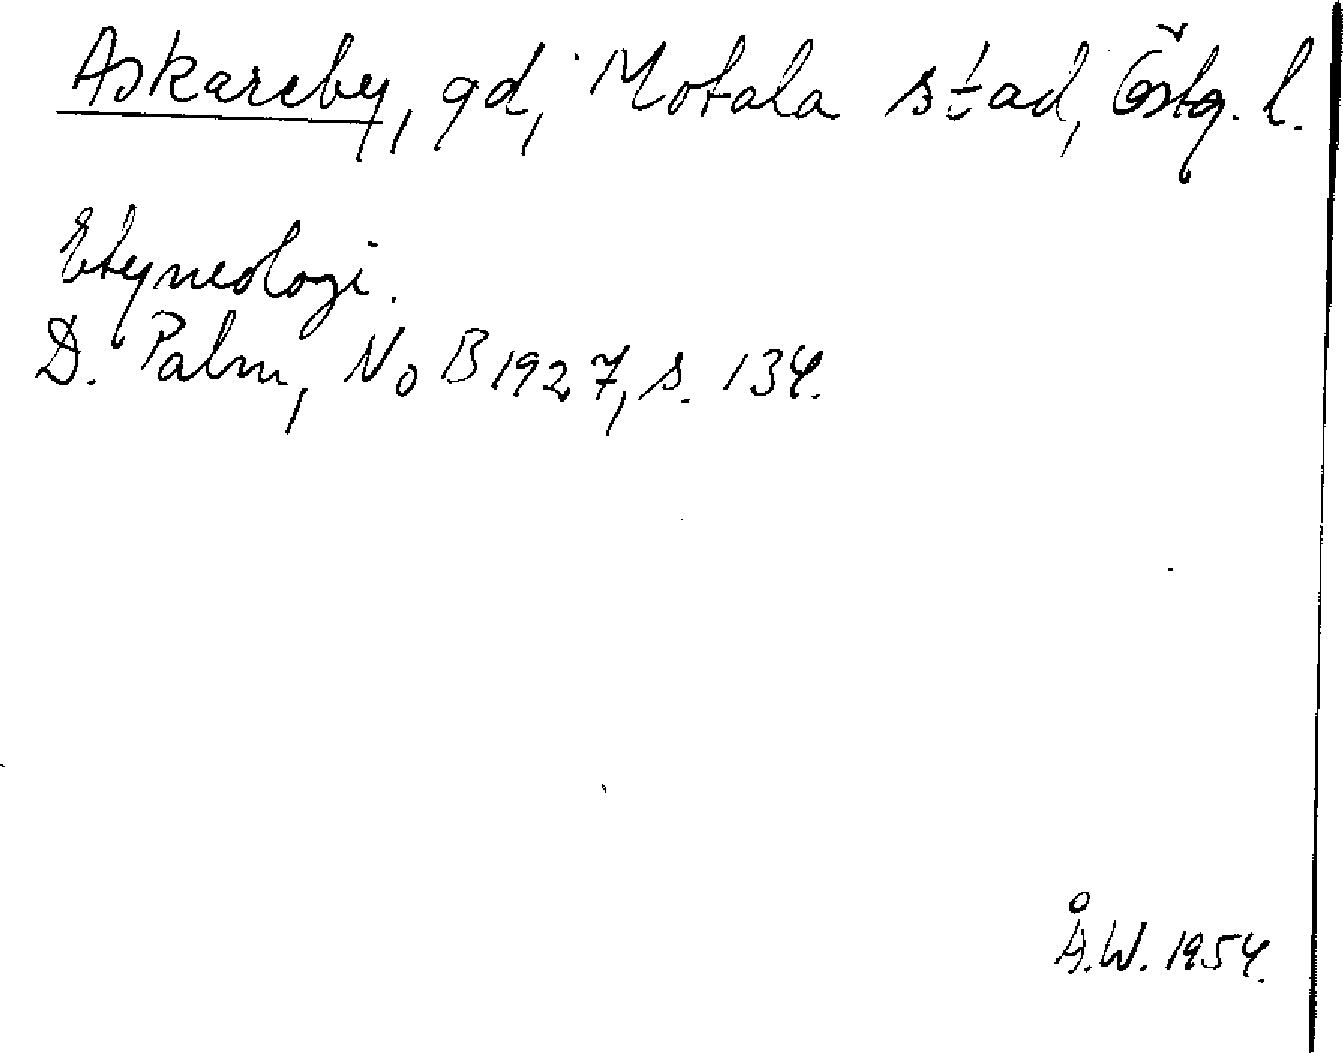 Askareby, gd, Motala stad, Östg. l.
Etymologi.
D. Palm, NoB 1927, s. 134.
Å.W. 1954.